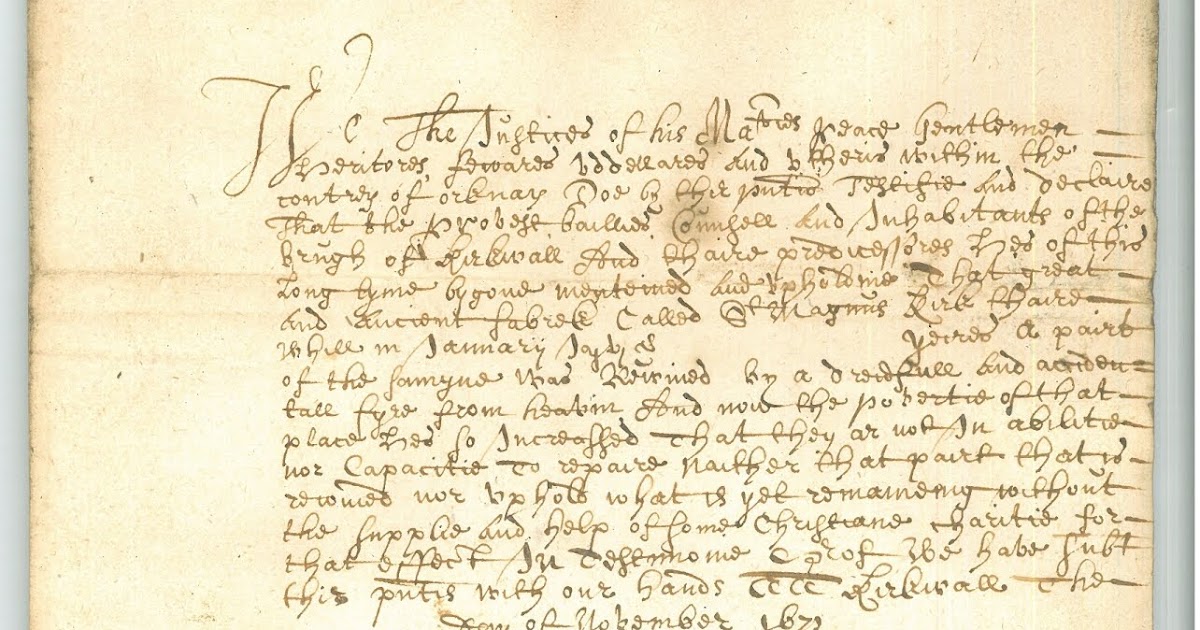 We The Justices of his Ma:ties peace Gentlemen
Heritores, fewares vddellares and vtheris within the
contrey of orknay Doe by thir pntis Testifie and declaire
That the provest baillies Counsell and Inhabitants of the
brugh of Kirkwall And thaire predicessores Hes of this
long tyme bygone menteined and vpholdine That great
and ancient fabrek Called St Magnus Kirk thaire
whill in Jannary Jajvjc yeires a pairt
of the samyne was Rewined by a dreidfull and acciden=
tall fyre from heavin And now the povertie of that
place Hes so Increassed That they ar not In abilitie
nor Capacitie To repaire naither that pairt that is
rewined nor vphold what is yet remaineing without
the supplie and help of some Christiane charitie for
that effect In Testimonie Qrof We have subt
thir pntis with our hands Att Kirkwall The
day of November 167